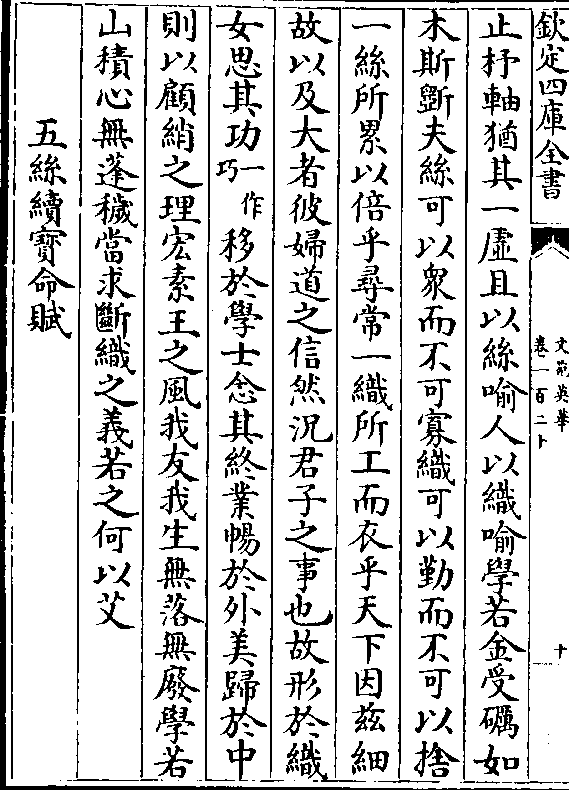 欽定四庫全書
文苑英華
卷一百二十
十
止抒軸猶其一虛且以絲喻人以織喻學若金受礪如
木斯斵夫絲可以衆而不可寡織可以勤而不可以捨
一絲所累以倍乎尋常一織所工而衣乎天下因兹細
故以及大者彼婦道之信然況君子之事也故形於織
女思其功一作巧移於學士念其終業暢於外美歸於中
則以顧綃之理宏素王之風我友我生無落無廢學若
山積心無蓬穢當求斷織之義若之何以艾
五絲續寶命賦